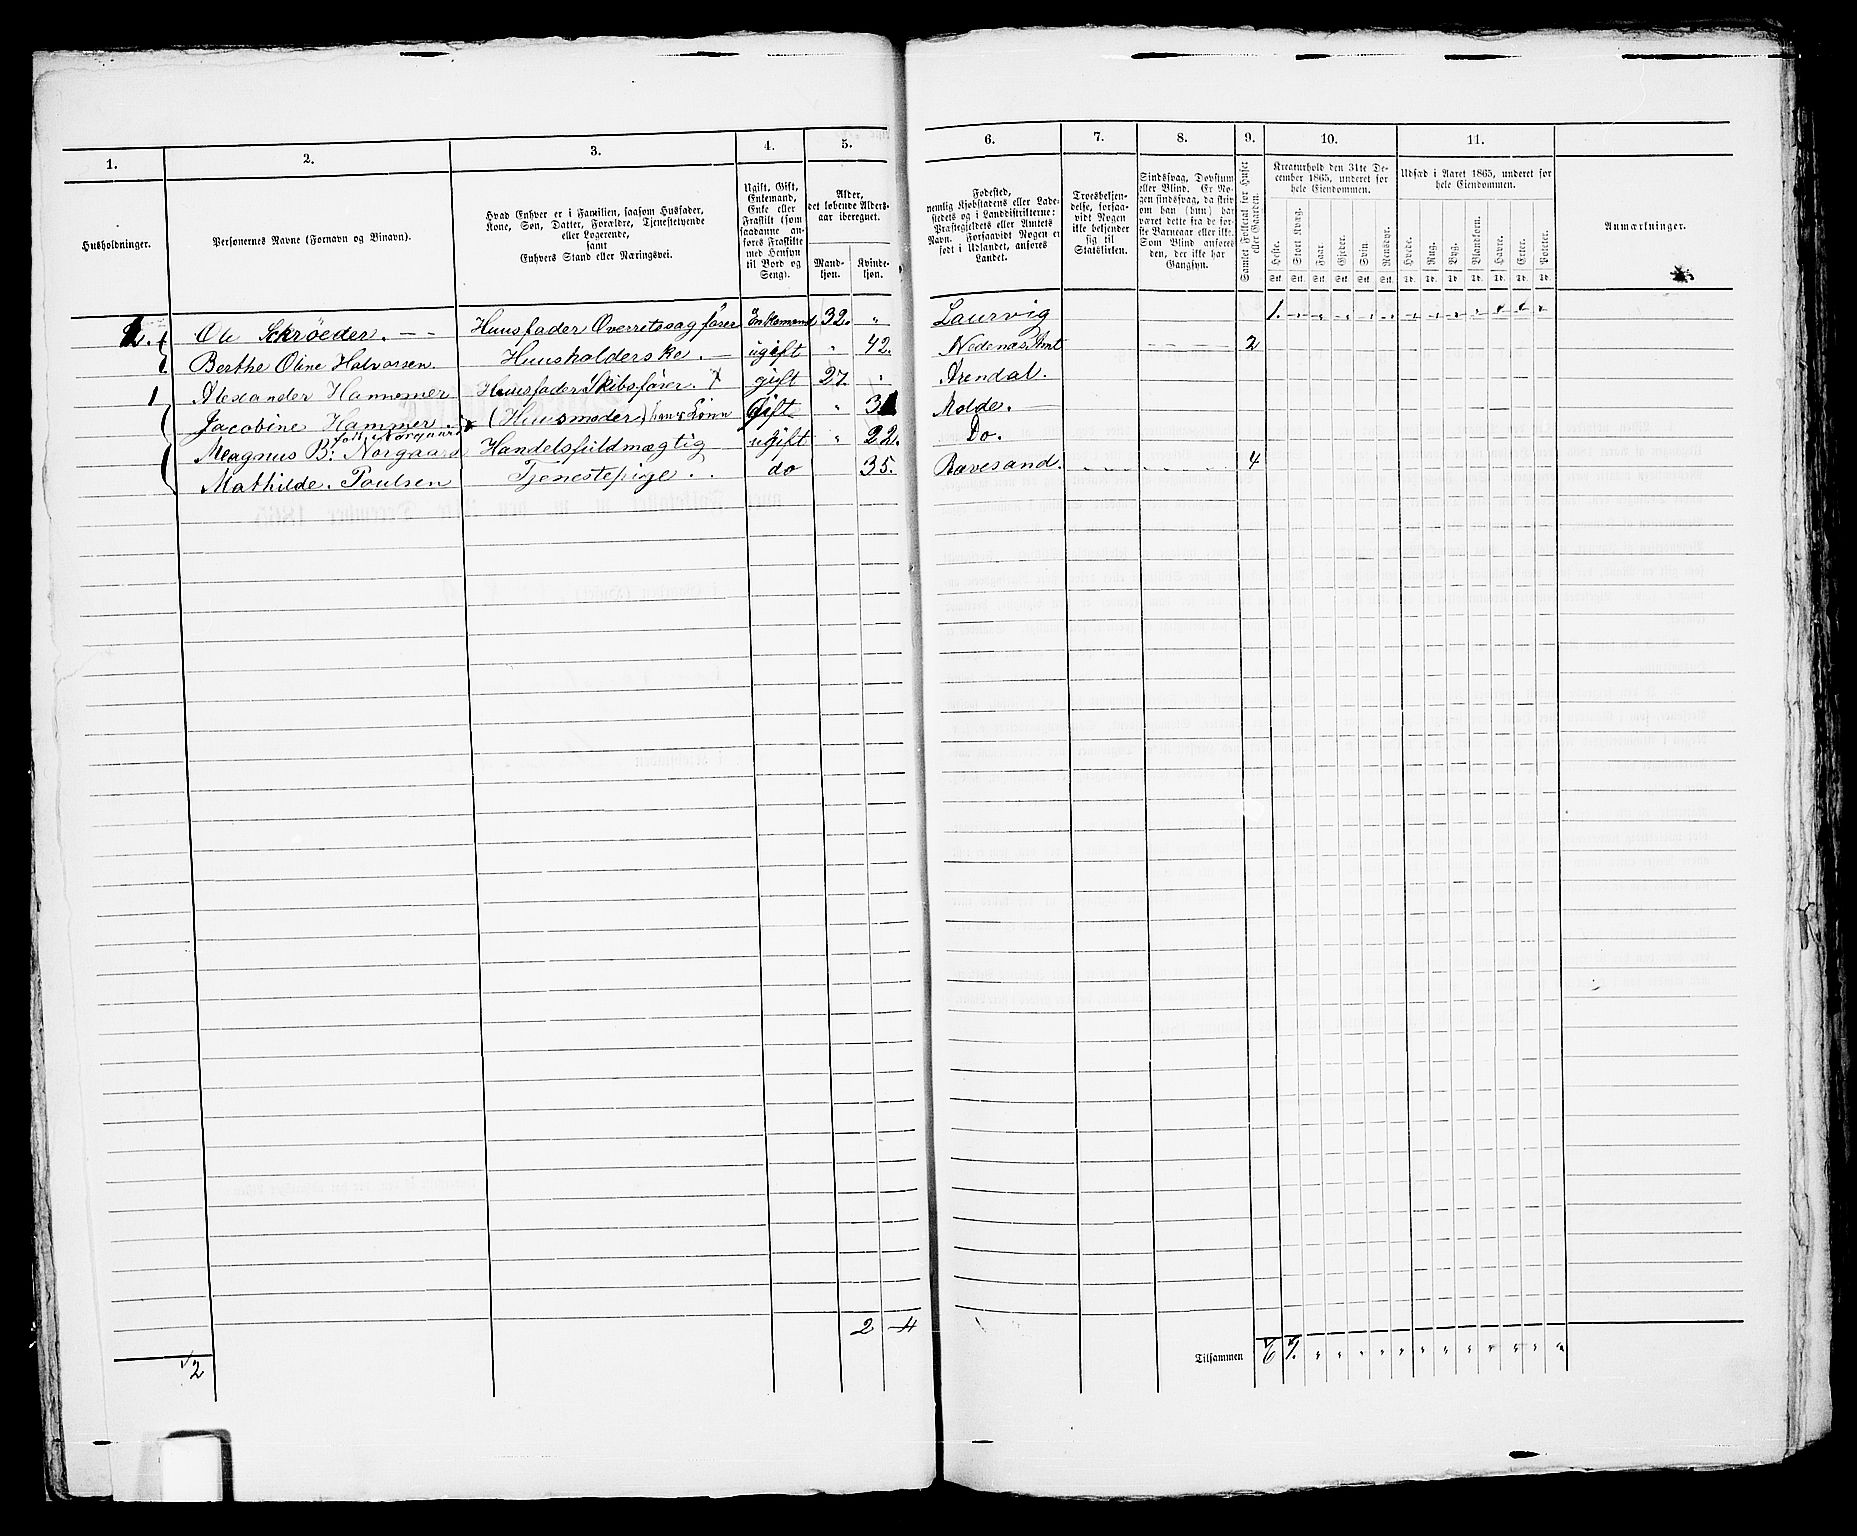 1. 2. 3. 4. 5. 6. 7. 8. 9. 10. 11.
Husholdninger.
Personernes Navne (Fornavn og Binavn).
Hvad Enhver er i Familien, saasom Husfader,
Kone, Søn, Datter, Forældre, Tjenestetyende
eller Logerende,
samt
Enhvers Stand eller Næringsvei.
Ugift, Gift,
Enkemand,
Enke eller
Fraskilt (som
saadanne an-
føres Fraskilte
med Hensyn
til Bord og
Seng).
Alder,
det løbende Alders-
aar iberegnet.
Mand-
kjøn.
Kvinde-
kjøn.
Fødested,
nemlig Kjøbstadens eller Lade-
stedets og i Landdistrikterne:
Præstegjeldets eller Amtets
Navn. Forsaavidt Nogen er
født i Udlandet, anføres
Landet.
Troesbekjen-
delse, forsaa-
vidt Nogen
ikke bekjender
sig til
Statskirken.
Sindssvag, Døvstum
eller Blind. Er No-
gen sindssvag, da skriv
om han (hun) har
været dette fra de før-
ste Barneaar eller ikke.
Som Blind anføres
den, der ikke har
Gangsyn.
Samlet Folketal for Huset
eller Gaarden.
Kreaturhold den 31te De-
cember 1865, underet for
hele Eiendommen.
Heste. Stort Kvæg. Faar. Gjeder. Svin. Rensdyr.
Stk. Stk. Stk. Stk. Stk. Stk.
Udsæd i Aaret 1865, underet for
hele Eiendommen.
Hvede. Rug. Byg. Blandkorn. Havre. Erter. Poteter.
Td. Td. Td. Td. Td. Td. Td.
Anmærkninger.
Ole Schröeder. Huusfader Overretssagfører Enkemand 32. " Laurvig 1.
Berthe Oline Halvorsen. Huusholderske. ugift " 42. Nedenæs Amt 2
1 Alexander Hammer Huusfader Skibsfører. gift 27. " Arendal.
Jacobine Hammer (Huusmoder) hans Kone Gift " 31 Molde.
født Norgaard
Magnus B: Norgaard Handelsfuldmægtig ugift " 22. Do.
Mathilde. Poulsen Tjenestepige do 35. Bavesand. 4
2 4
2
Tilsammen